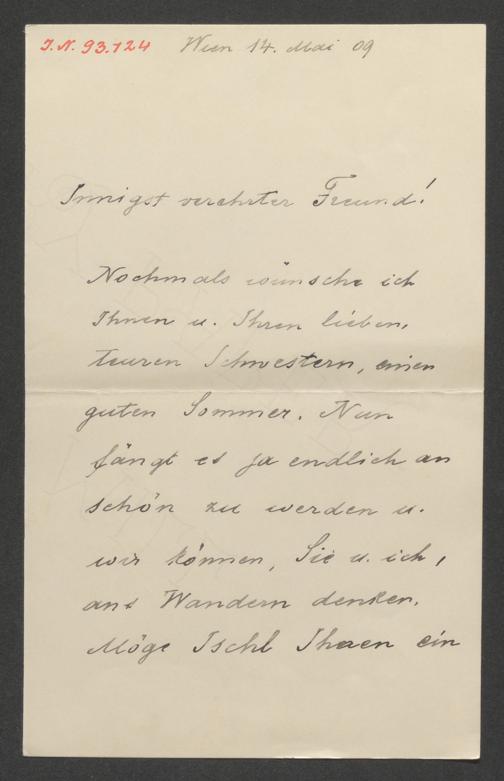 J.N. 93.124 Wien 14. Mai 09
Innigst verehrter Freund!
Nochmals wünsche ich
Ihnen u. Ihren lieben,
teuren Schwestern, einen
guten Sommer. Nun
fängt es ja endlich an
schön zu werden u.
wir können, Sie u. ich,
ans Wandern denken.
Möge Ischl Ihnen ein